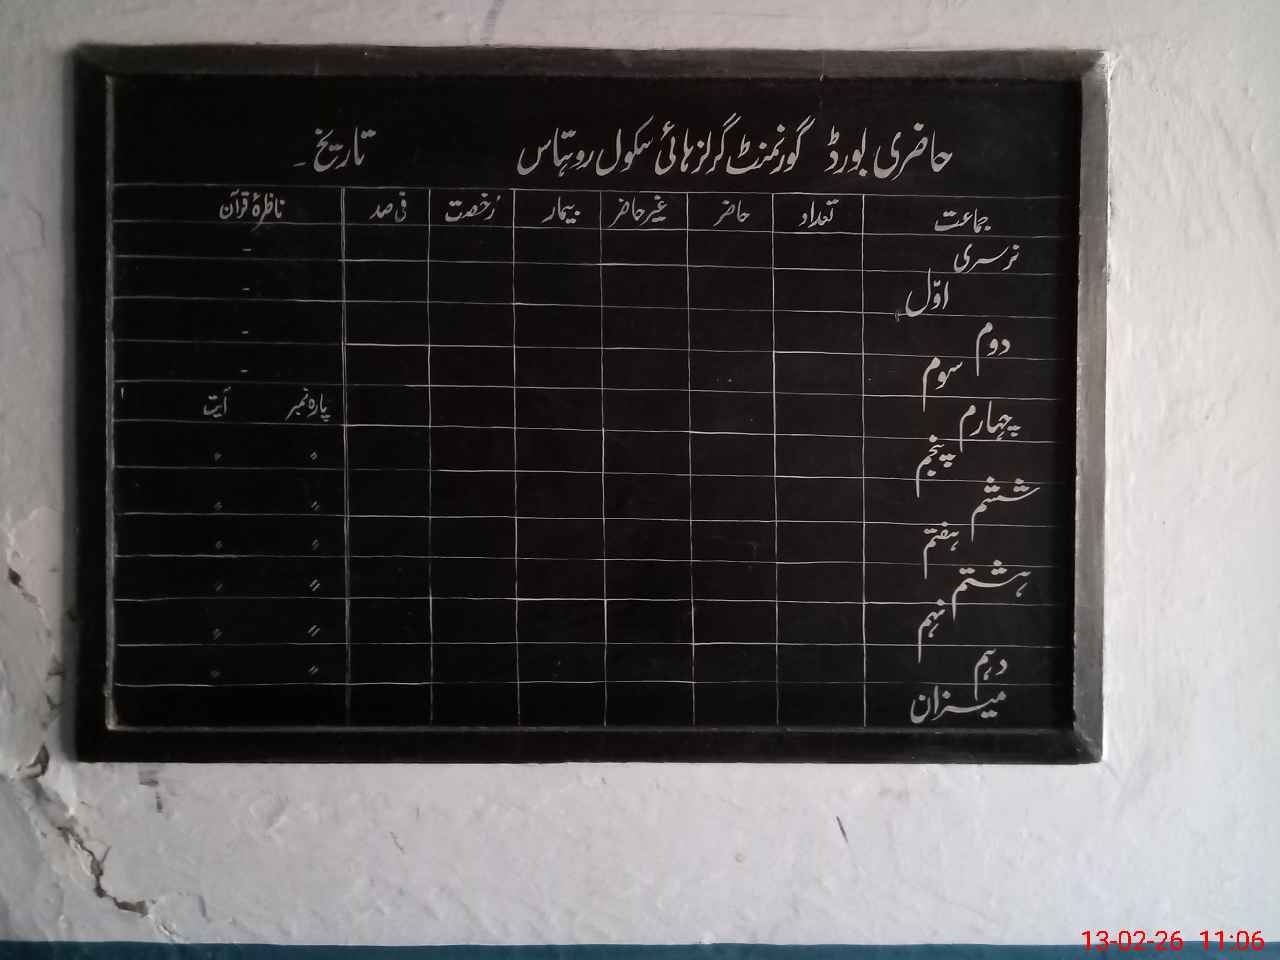 حاضری بورڈ گورنمنٹ گرلز ہائی سکول روہتاس تاریخ ـ
جماعت تعداد حاضر غیر حاضر بیمار رُخصت فی صد ناظرۂ قرآن
نرسری -
اوّل -
دوم -
سوم -
چہارم پارہ نمبر آیت
پنجم 〃 〃
ششم 〃 〃
ہفتم 〃 〃
ہشتم 〃 〃
نہم 〃 〃
دہم 〃 〃
میزان
13-02-26 11:06